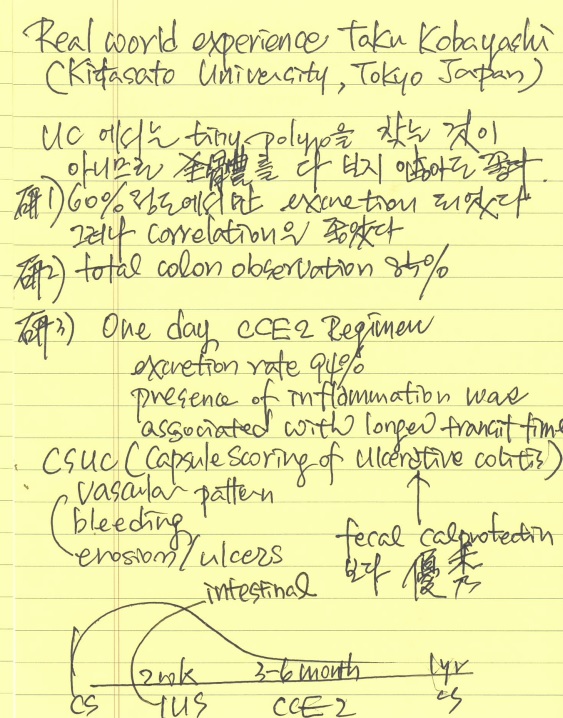 Real world experience Taku Kobayashi
(Kitasato University, Tokyo Japan)
UC 에서는 tiny polyp을 찾는 것이
아니므로 全員를 다 보지 않아도 좋다.
研1) 60% 정도에서만 excretion 되었다
그러나 correlation은 좋았다
研2) total colon observation 85%
研3) One day CCE2 Regimen
excretion rate 94%
presence of inflammation was
associated with longer transit time
CSUC (Capsule Scoring of Ulcerative colitis)
vascular pattern
bleeding
erosion/ulcers
fecal calprotectin
보다 優秀
intestinal
2wk 3-6 month 1yr
CS IUS CCE2 CS